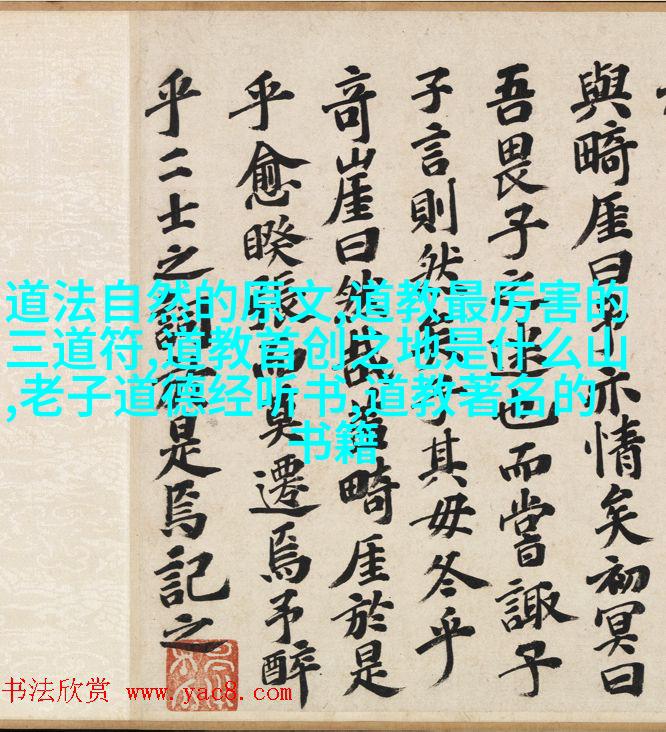 與畸厓曰予亦情矣初冥曰
吾畏子之迷也而嘗諏子
子言則然矣子其毋冬乎
奇崖曰然畸厓於是
乎愈睽張而莫遷焉予醉
乎二士之是焉記之
道法自然的原文,道教最厉害的
三道符,道教首创之地是什么山
,老子道德经听书,道教著名的
书籍
书法欣赏 www.yac8.com